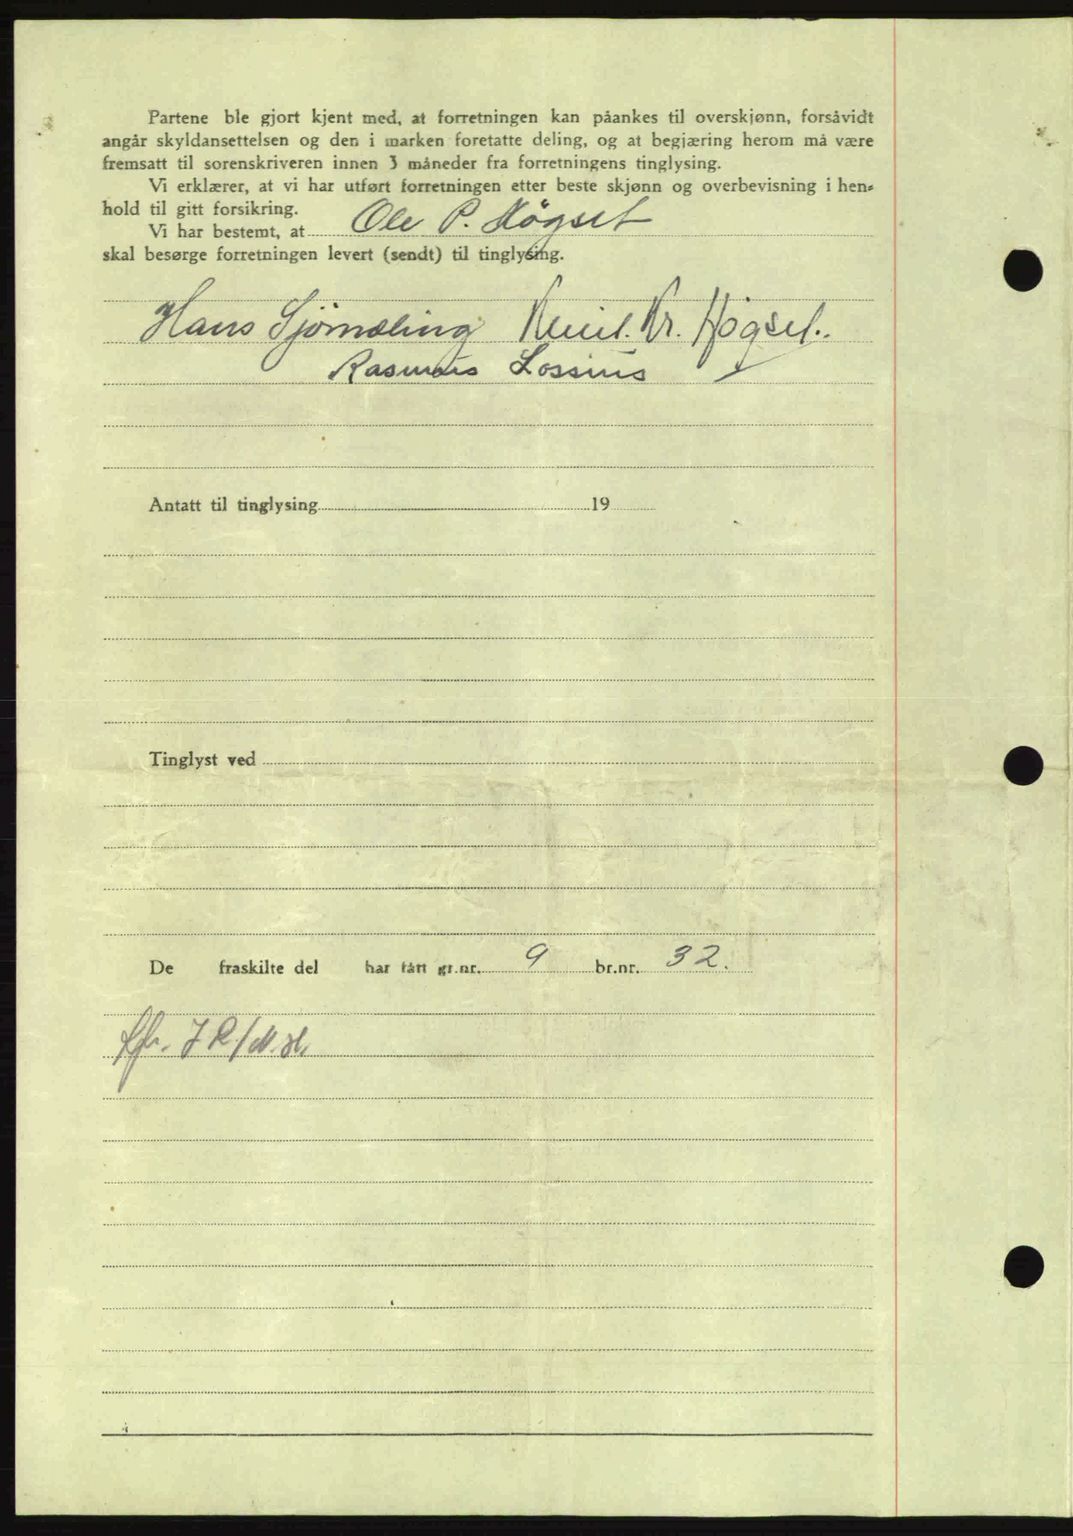 Partene ble gjort kjent med, at forretningen kan påankes til overskjønn, forsåvidt
angår skyldansettelsen og den i marken foretatte deling, og at begjæring herom må være
fremsatt til sorenskriveren innen 3 måneder fra forretningens tinglysing.
Vi erklærer, at vi har utført forretningen etter beste skjønn og overbevisning i hen-
hold til gitt forsikring.
Vi har bestemt, at Ole P. Högset
skal besørge forretningen levert (sendt) til tinglysing.
Hans Sjömæling Kr. Høgset.
Rasmus Lossius
Antatt til tinglysing 19
Tinglyst ved
De fraskilte del har fått gr.nr. 9 br.nr. 32.